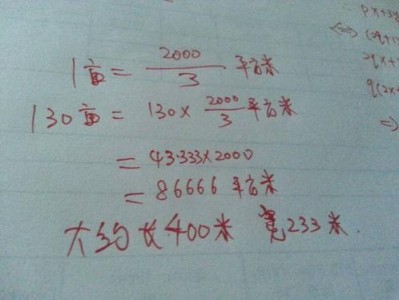 1亩 = 2000/3 平方米
130亩 = 130 × 2000/3 平方米
= 43.333×2000
= 86666 平方米
大约长400米 宽233米.